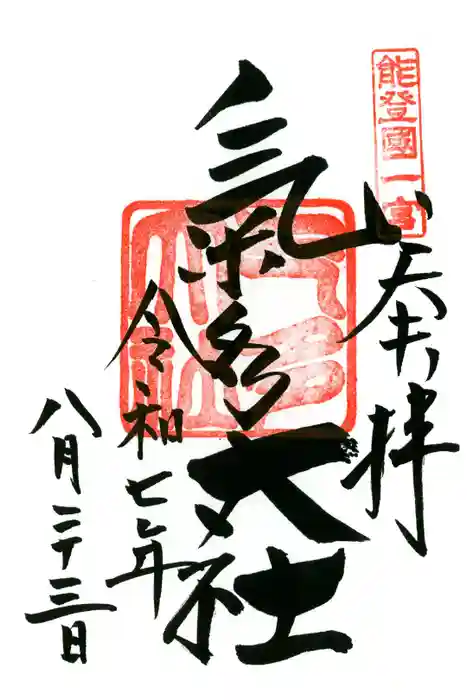 能登國一宮
奉拝
氣多大社
令和七年
八月二十三日